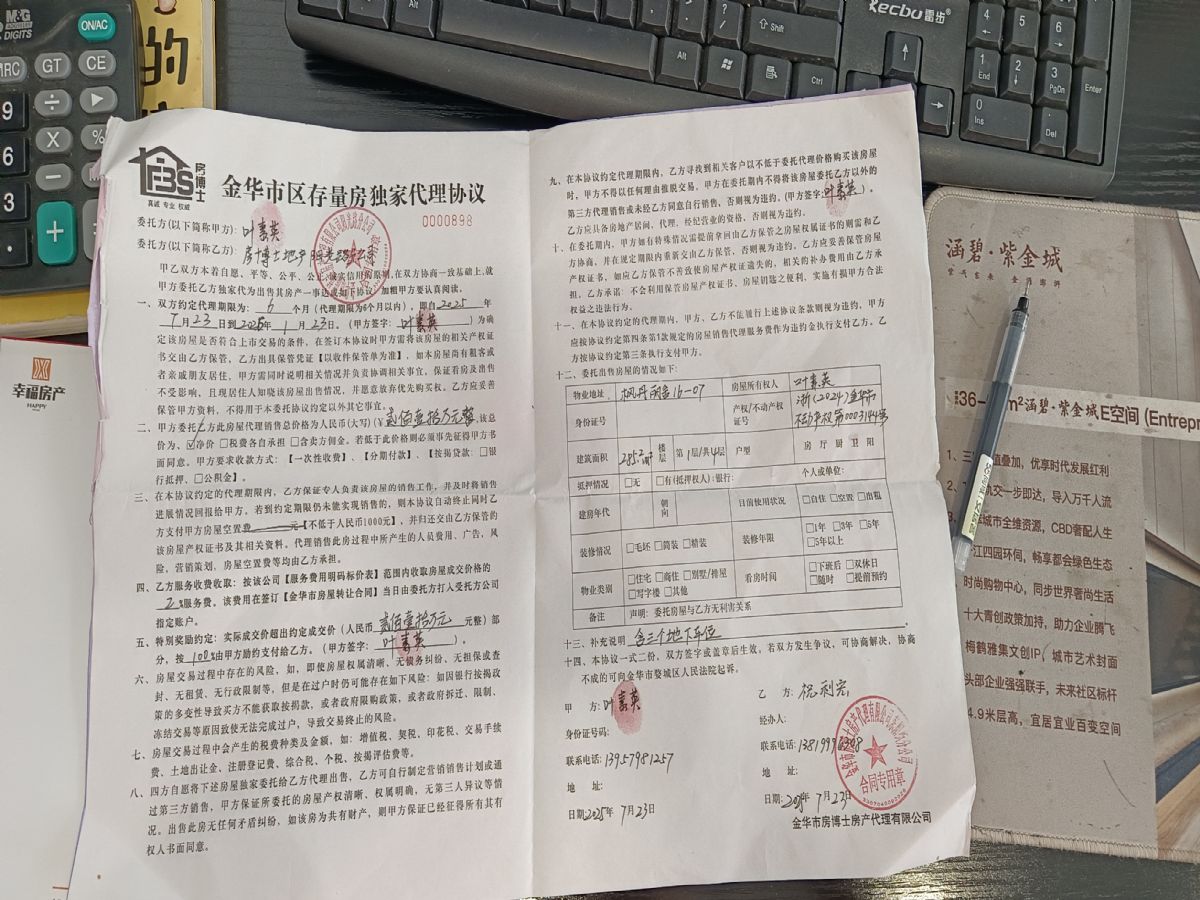 M&G
DIGITS
ON/AC
MRC
GT
CE
÷
▶
9
X
%
6
−
3
+
的
Kecbu 雷步
Alt
Alt
Ctrl
⇧Shift
4
5
6
1
End
2
3
PgDn
Enter
0
Ins
Del
幸福房产
HAPPY
FBS
房博士
真诚 专业 权威
金华市区存量房独家代理协议
0000898
委托方(以下简称甲方):叶素英
委托方(以下简称乙方):房博士地产
甲乙双方本着自愿、平等、公平、公正、诚实信用的原则,在双方协商一致基础上,就
甲方委托乙方独家代为出售其房产一事达成如下协议,加粗甲方要认真阅读。
一、双方约定代理期限为: 6 个月(代理期限为6个月以内),即自2025年
7月23日到2026年1月23日。(甲方签字:叶素英)为确
定该房屋是否符合上市交易的条件,在签订本协议时甲方需将该房屋的相关产权证
书交由乙方保管,乙方出具保管凭证【以收件保管单为准】,如本房屋尚有租客或
者亲戚朋友居住,甲方需同时说明相关情况并负责协调相关事宜,保证看房及出售
不受影响,且现居住人知晓该房屋出售情况,并愿意放弃优先购买权。乙方应妥善
保管甲方资料,不得用于本委托协议约定以外其它事宜。
二、甲方委托乙方此房屋代理销售总价格为人民币(大写)(¥贰佰壹拾万元整,该总
价为、☑净价 □税费各自承担 □含卖方佣金。若低于此价格则必须事先征得甲方书
面同意。甲方要求收款方式:【一次性收费】、【分期付款】、【按揭贷款:□银
行抵押、□公积金】。
三、在本协议约定的代理期限内,乙方保证专人负责该房屋的销售工作,并及时将销售
进展情况回报给甲方。若到约定期限仍未能实现销售的,则本协议自动终止同时乙
方支付甲方房屋空置费 元【不低于人民币1000元】,并归还交由乙方保管的
该房屋产权证书及其相关资料。代理销售此房过程中所产生的人员费用、广告、风
险,营销策划,房屋空置费等均由乙方承担。
四、乙方服务收费收取:按该公司【服务费用明码标价表】范围内收取房屋成交价格的
2%服务费。该费用在签订【金华市房屋转让合同】当日由委托方打入受托方公司
指定账户。
五、特别奖励约定:实际成交价超出约定成交价(人民币贰佰壹拾万元 元整)部
分,按100%由甲方励约支付给乙方。(甲方签字:叶素英)。
六、房屋交易过程中存在的风险,如,即使房屋权属清晰、无债务纠纷、无担保或查
封、无租赁、无行政限制等,但是在过户时仍可能存在如下风险:如因银行按揭政
策的多变性导致买方不能获取按揭款,或者政府限购政策,或者政府拆迁、限制、
冻结交易等原因致使无法完成过户,导致交易终止的风险。
七、房屋交易过程中会产生的税费种类及金额,如:增值税、契税、印花税、交易手续
费、土地出让金、注册登记费、综合税、个税、按揭评估费等。
八、四方自愿将下述房屋独家委托给乙方代理出售,乙方可自行制定营销销售计划或通
过第三方销售,甲方保证所委托的房屋产权清晰、权属明确,无第三人异议等情
况。出售此房无任何矛盾纠纷,如该房为共有财产,则甲方保证已经征得所有其有
权人书面同意。
九、在本协议约定代理期限内,乙方寻找到相关客户以不低于委托代理价格购买该房屋
时,甲方不得以任何理由推脱交易,甲方在委托期内不得将该房屋委托乙方以外的
第三方代理销售或未经乙方同意自行销售,否则视为违约。(甲方签字:叶素英)。
乙方应具备房地产居间、代理、经纪营业的资格,否则视为违约。
十、在委托期内,甲方如有特殊情况需提前拿回由乙方保管之房屋权属证书的则需和乙
方协商,并在规定期限内重新交由乙方保管,否则视为违约。乙方应妥善保管房屋
产权证书,如应乙方保管不善致使房屋产权证遗失的,相关的补办费用由乙方承
担。乙方承诺:不会利用保管房屋产权证书、房屋钥匙之便利,实施有损甲方合法
权益之违法行为。
十一、在协议约定的代理期内,甲方、乙方不能履行上述协议条款则视为违约,甲方
应按协议约定第四条第1款规定的房屋销售代理服务费作为违约金执行支付乙方。乙
方按协议约定第三条执行支付甲方。
十二、委托出售房屋的情况如下:
物业地址 枫丹丽舍16-07 房屋所有权人 叶素英
身份证号 产权/不动产权证号 浙(2024)金华市不动产权第0003144号
建筑面积 285.2m² 楼层 第1层/共4层 户型 房 厅 厨 卫 阳
抵押情况 □无 □有(抵押权人):银行: 个人或单位:
建房年代 朝向 目前使用状况 □自住 □空置 □出租
装修情况 □毛坯 □简装 □精装 装修年限 □1年 □3年 □5年 □5年以上
物业类别 □住宅 □商住 □别墅/排屋 □写字楼 □其他 看房时间 □下班后 □双休日 □随时 □提前预约
备注 声明:委托房屋与乙方无利害关系
十三、补充说明 含三个地下车位
十四、本协议一式二份,双方签字或盖章后生效,若双方发生争议,可协商解决,协商
不成的可向金华市婺城区人民法院起诉。
甲 方:叶素英
乙 方:祝利宏
身份证号码:
经办人:
联系电话:13957981257
联系电话:138199
地 址:
地 址:
日期:2025年7月23日
日期:2025年7月23日
合同专用章
金华市房博士房产代理有限公司
涵碧·紫金城
36- m²涵碧·紫金城E空间 (Entrepr
值叠加,优享时代发展红利
轨交一步即达,导入万千人流
城市全维资源,CBD奢配人生
江四园环伺,畅享都会绿色生态
时尚购物中心,同步世界奢尚生活
十大青创政策加持,助力企业腾飞
梅鹤雅集文创IP,城市艺术封面
头部企业强强联手,未来社区标杆
4.9米层高,宜居宜业百变空间